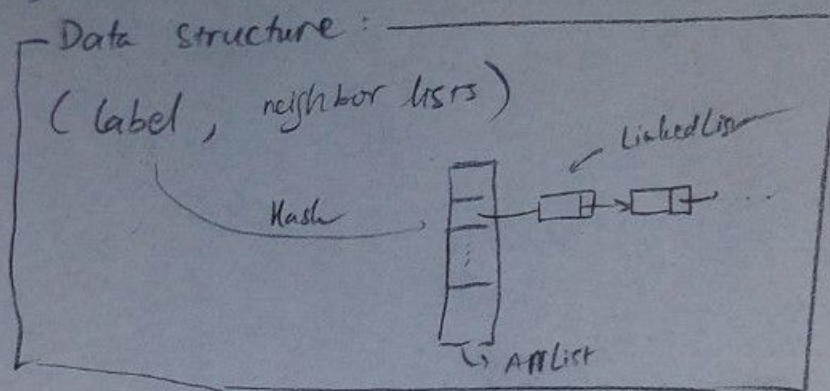 Data structure:
(label, neighbor lists)
LinkedList
Hash
...
ArrList